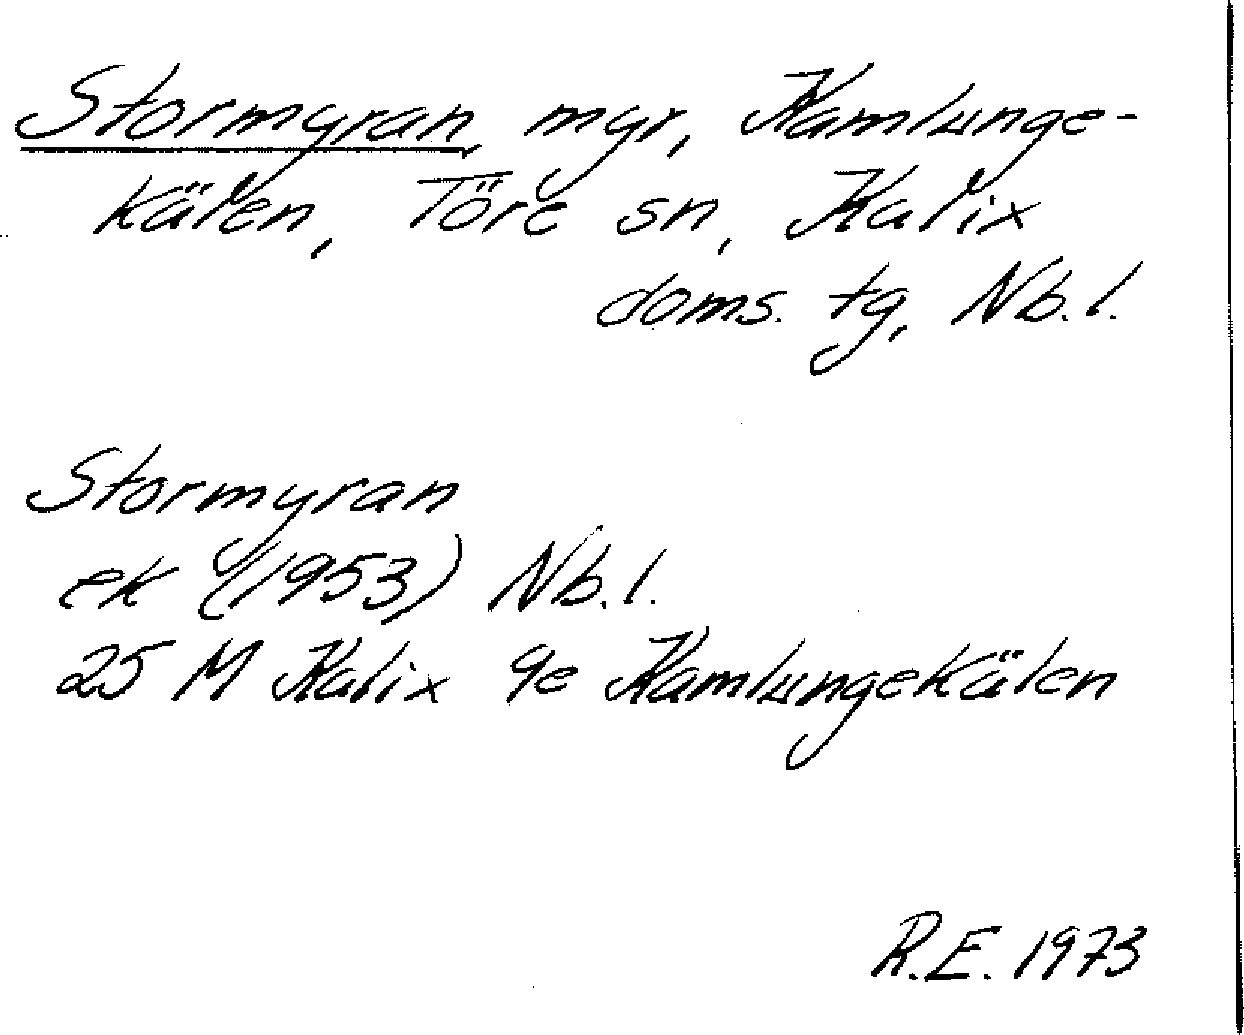 Stormyran, myr, Kamlunge-
kälen, Töre sn, Kalix
doms. tg, Nb. l.
Stormyran
ek (1953) Nb. l.
25 M Kalix 9e Kamlungekälen
R.E. 1973